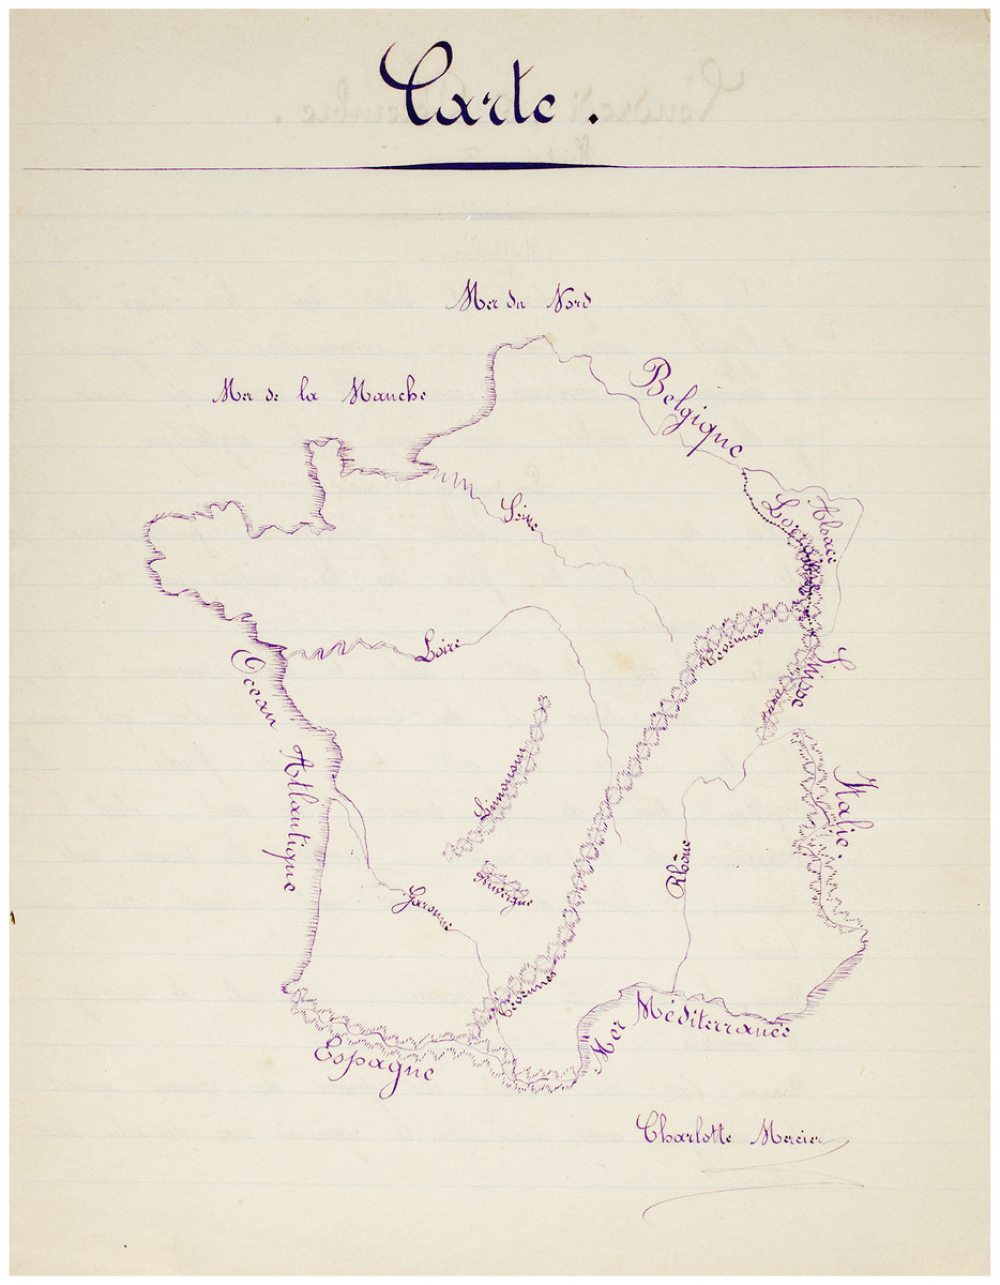 Carte.
Mer du Nord
Mer de la Manche
Belgique
Alsace
Lorraine
Seine
Cévennes
Loire
Suisse
Jura
Océan Atlantique
Limousin
Italie.
Rhône
Auvergne
Garonne
Cévennes
Mer Méditerranée
Espagne
Charlotte Mercier